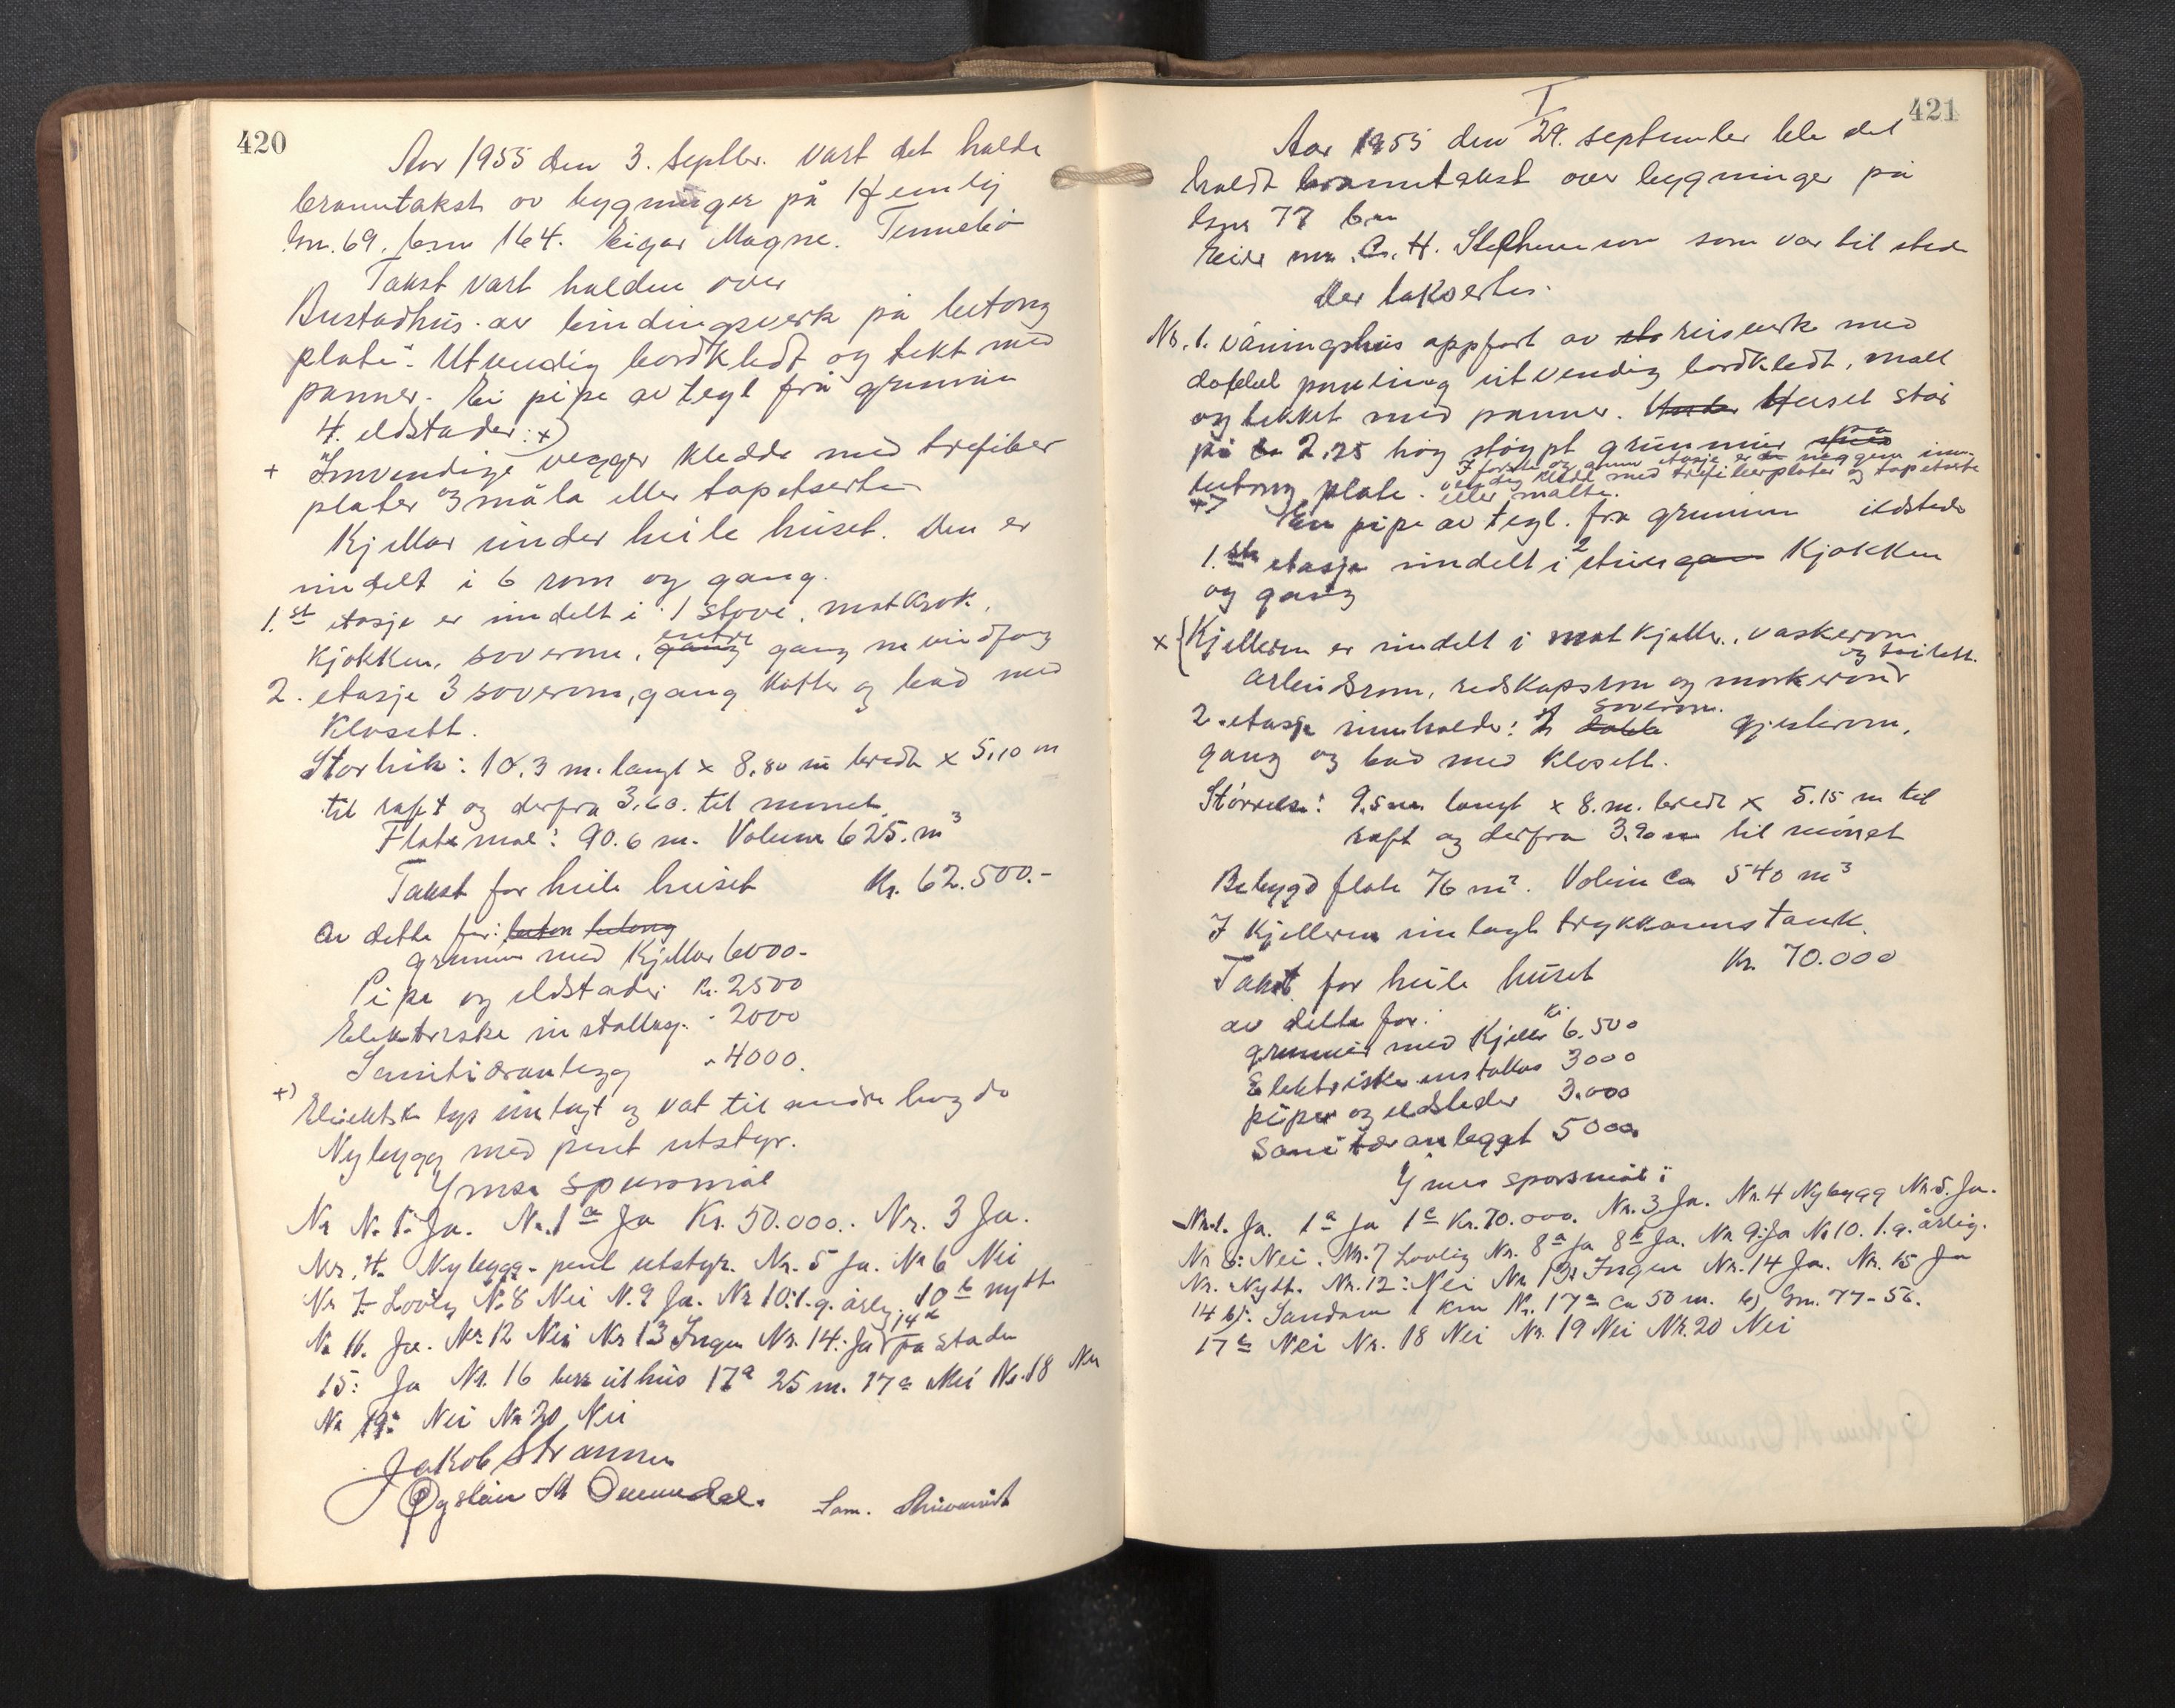 420
Aar 1955 den 3. septbr. vart det halde
branntakst ov bygninger på
Gn. 69. bnr 164. Eigar Magne. Tennebø
Takst vart halden over
Bustadhus. av bindingsverk på betong
plate. Utvendig bordkledt og tekt med
panner. Ei pipe av tegl frå grunnen
4. eldstader: x)
+ Innvendige vegger kledde med trefiber
plater og måla eller tapetserte
Kjellar under heile huset. Den er
inndelt i 6 rom og gang.
1.st etasje er inndelt i 1 stove, matkrok,
entre
kjøkken, soverom, gang gang m vindfang
2. etasje 3 soverom, gang kott og bad med
klosett.
Storleik: 10.3 m. langt x 8,80 m bredt x 5,10 m
til raft og derfra 3.60. til mønet
Flatemål: 90.6 m. Volum 625. m3
Takst for heile huset Kr. 62.500.-
av dette for: beton betong
grunnm med Kjellar 6000-
Pipe og eldstader Kr. 2500
Elektriske installasj. - 2000
Sanitæranlegg - 4000.
+) Elektrisk lys innlagt og vat til
Nybygg med pent utstyr.
Ymse spursmål
Nr No. 1. Ja. Nr. 1a Ja Kr. 50.000.. Nr. 3 Ja.
Nr. 4. Nybygg - pent utstyr. Nr. 5 Ja. Nr 6 Nei
Nr 7- Lovlig No 8 Nei N. 9 Ja. Nr 10: 1. g. årlig. 10b nytt
14a
Nr 11. Ja. Nr. 12 Nei Nr 13 Ingen Nr. 14. Ja på staden
15: Ja Nr. 16 uthus 17a 25 m. 17c Nei Nr. 18 Nei
Nr 19: Nei Nr 20 Nei
Jakob Strømmen
Øystein M
Lam.
421
I
Aar 1955 den 29. september ble det
holdt branntakst over bygninger på
Gnr 77 bnr
Eier mr. C. H. Stephenson som var til stede
Der taksertes.
Nr. 1. våningshus oppført av reisverk med
dobbel panling utvendig bordkledt, malt
og tekket med panner. Under Huset står
på
på 2.25 høg støypt grunnmur
I første og annen etasje er veggene inn-
vendig kledd med trefiberplater og tapetserte
betong plate. eller malte.
+> En pipe av tegl. fra grunnen ildsteder
1.ste etasje inndelt i 2 stuer gan Kjøkken
og gang
x { Kjelleren er inndelt i mat kjeller, vaskerom
og toilett.
arbeidsrom, redskapsrom og mørkerom
soverom.
2. etasje inneholder: 2 gjesterom,
gang og bad med klosett.
Størrelse: 9.5 m langt x 8. m. bredt x 5.15 m til
raft og derfra 3.90 m til mønet
Bebygd flate 76 m2. Volum ca 540 m3
I Kjelleren innlagt trykkvanns tank.
Takst for heile huset Kr. 70.000
av dette for:
Kr.
grunnmur med Kjeller 6.500
Elektriske installas 3000
piper og eldsteder 3.000
Sanitær anlegget 5000
Ymes spørsmål:
Nr. 1. Ja. 1a Ja 1c Kr. 70.000. Nr. 3 Ja. Nr. 4 Nybygg Nr. 5. Ja.
Nr 6: Nei. Nr. 7 Lovlig Nr. 8a Ja 8b Ja. Nr 9: Ja No 10. 1. g. årlig.
Nr. Nytt. Nr. 12: Nei Nr 13: Ingen Nr. 14 Ja. Nr. 15 Ja
14 b): 1 km Nr. 17a ca 50 m. b) Gnr. 77-56.
17c Nei Nr. 18 Nei Nr. 19 Nei Nr. 20 Nei